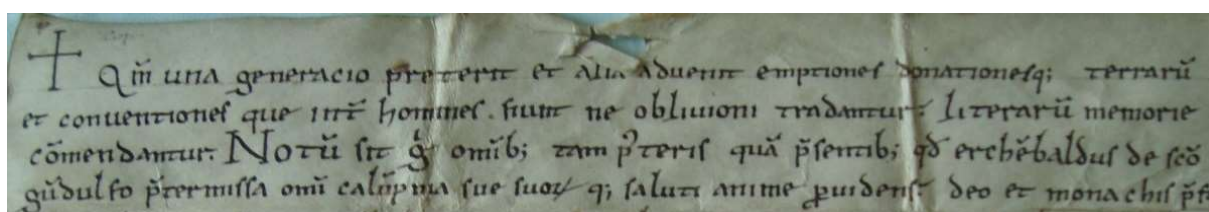 Qm̄ una generacio preterit et alia aduenit emptiones donationesq; terrarū
et conuentiones que intˉ homines. fiunt ne obliuioni tradantur. literarū memorie
cōmendantur. Notū sit g̊ omīb; tam p̄teris quā p̄sentib; qđ erchēbaldus de scō
gūdulfo p̄termissa omī calūpnia sue suoꝝ q; saluti anime ꝓuidens. deo et monachis